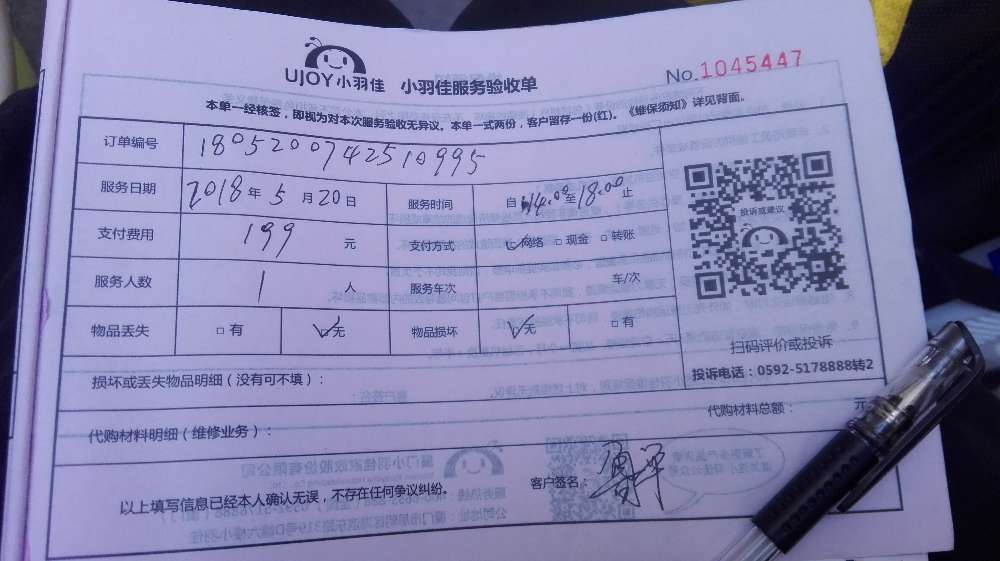 UJOY小羽佳 小羽佳服务验收单 No.1045447
本单一经核签，即视为对本次服务验收无异议。本单一式两份，客户留存一份(红)。《维保须知》详见背面。
订单编号 1805200742510995
服务日期 2018年5月20日 服务时间 自14.00至18.00止
支付费用 199元 支付方式 ☑网络 □现金 □转账
服务人数 1人 服务车次 车/次
物品丢失 □有 ☑无 物品损坏 ☑无 □有
投诉或建议
扫码评价或投诉
投诉电话：0592-5178888转2
损坏或丢失物品明细（没有可不填）：
代购材料明细（维修业务）： 代购材料总额： 元
以上填写信息已经本人确认无误，不存在任何争议纠纷。 客户签名：